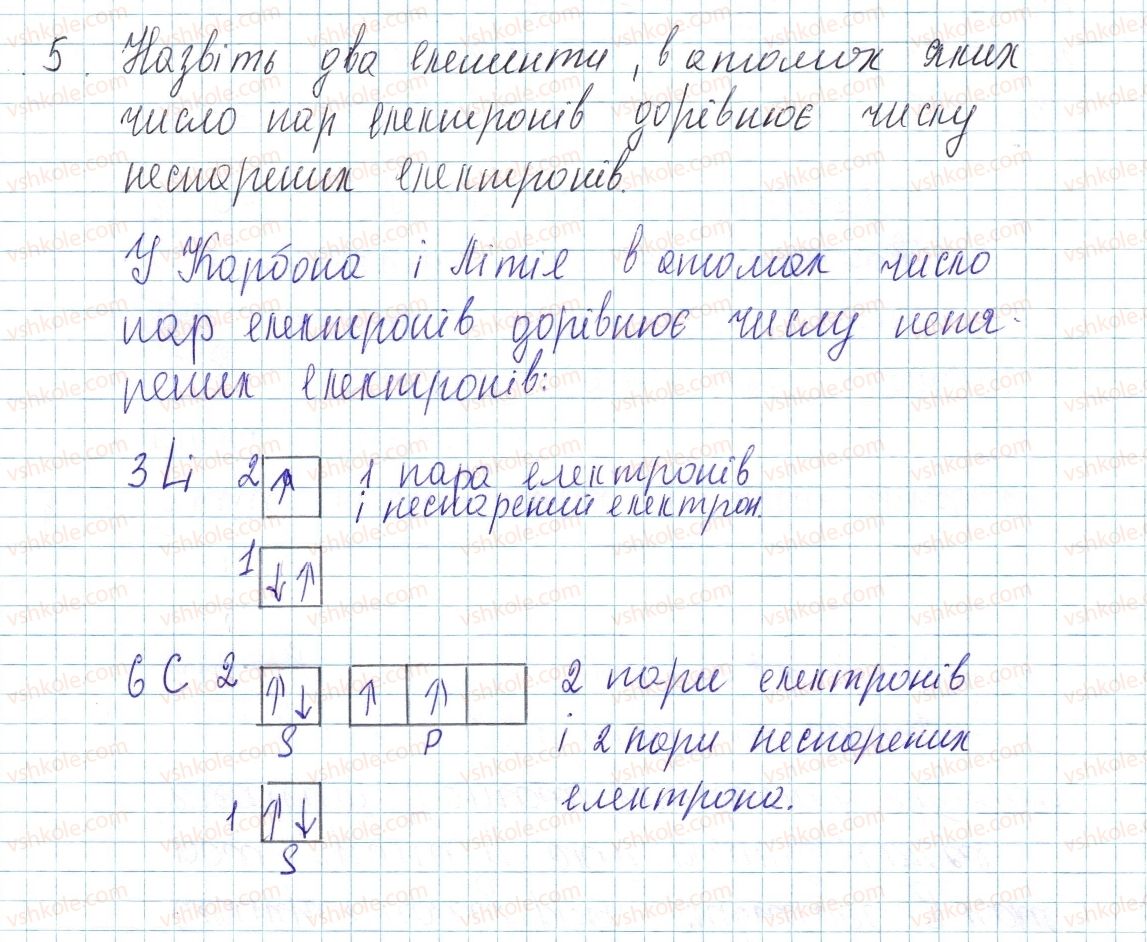 5. Назвіть два елементи, в атомах яких
число пар електронів дорівнює числу
неспарених електронів.
У Карбона і Літія в атомах число
пар електронів дорівнює числу непа-
рених електронів:
3 Li 2 ↑ 1 пара електронів
і неспарений електрон.
1 ↓↑
6 C 2 ↑↓ ↑ ↑ 2 пари електронів
S P і 2 пари неспарених
1 ↑↓ електрона.
S